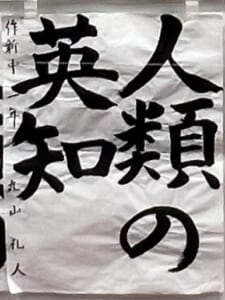 人類の
英知
作新中 年 丸山礼人